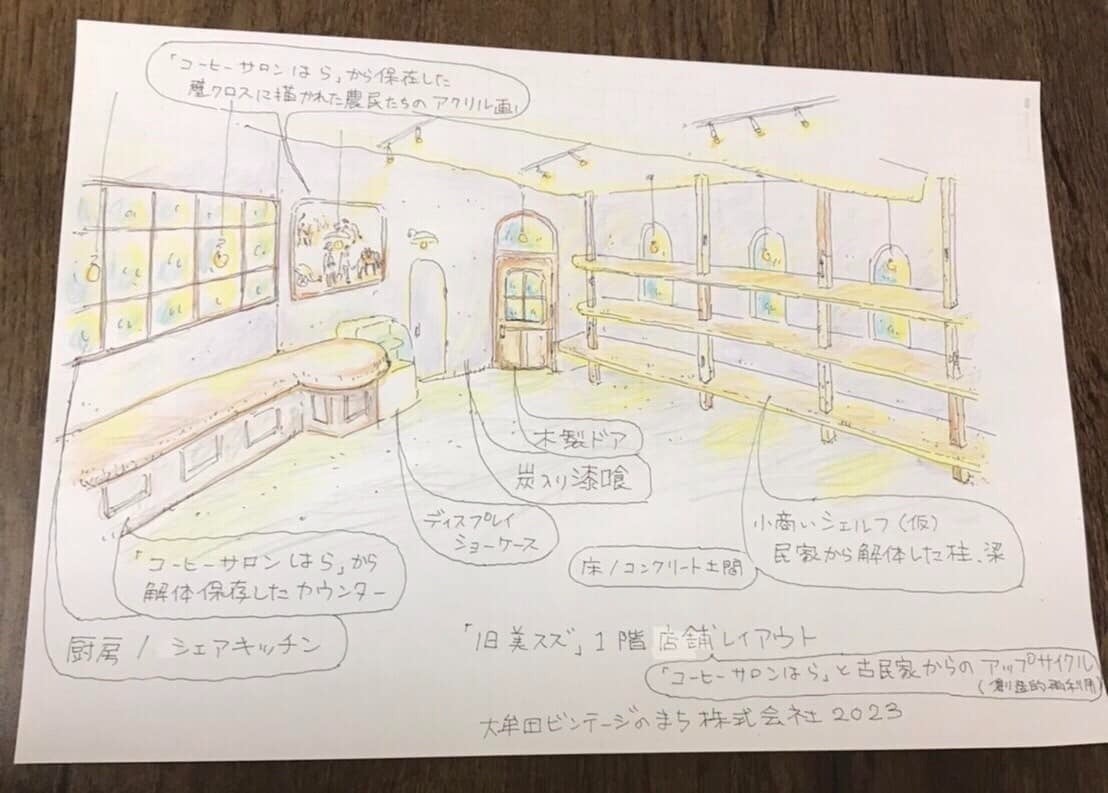 「コーヒーサロンはら」から保存した
壁クロスに描かれた農民たちのアクリル画
木製ドア
炭入り漆喰
ディスプレイ
ショーケース
「コーヒーサロンはら」から
解体保存したカウンター
厨房 / シェアキッチン
床/コンクリート土間
小商いシェルフ(仮)
民家から解体した柱、梁
「旧美スズ」1階店舗レイアウト
「コーヒーサロンはら」と古民家からのアップサイクル
(創造的再利用)
大牟田ビンテージのまち株式会社2023